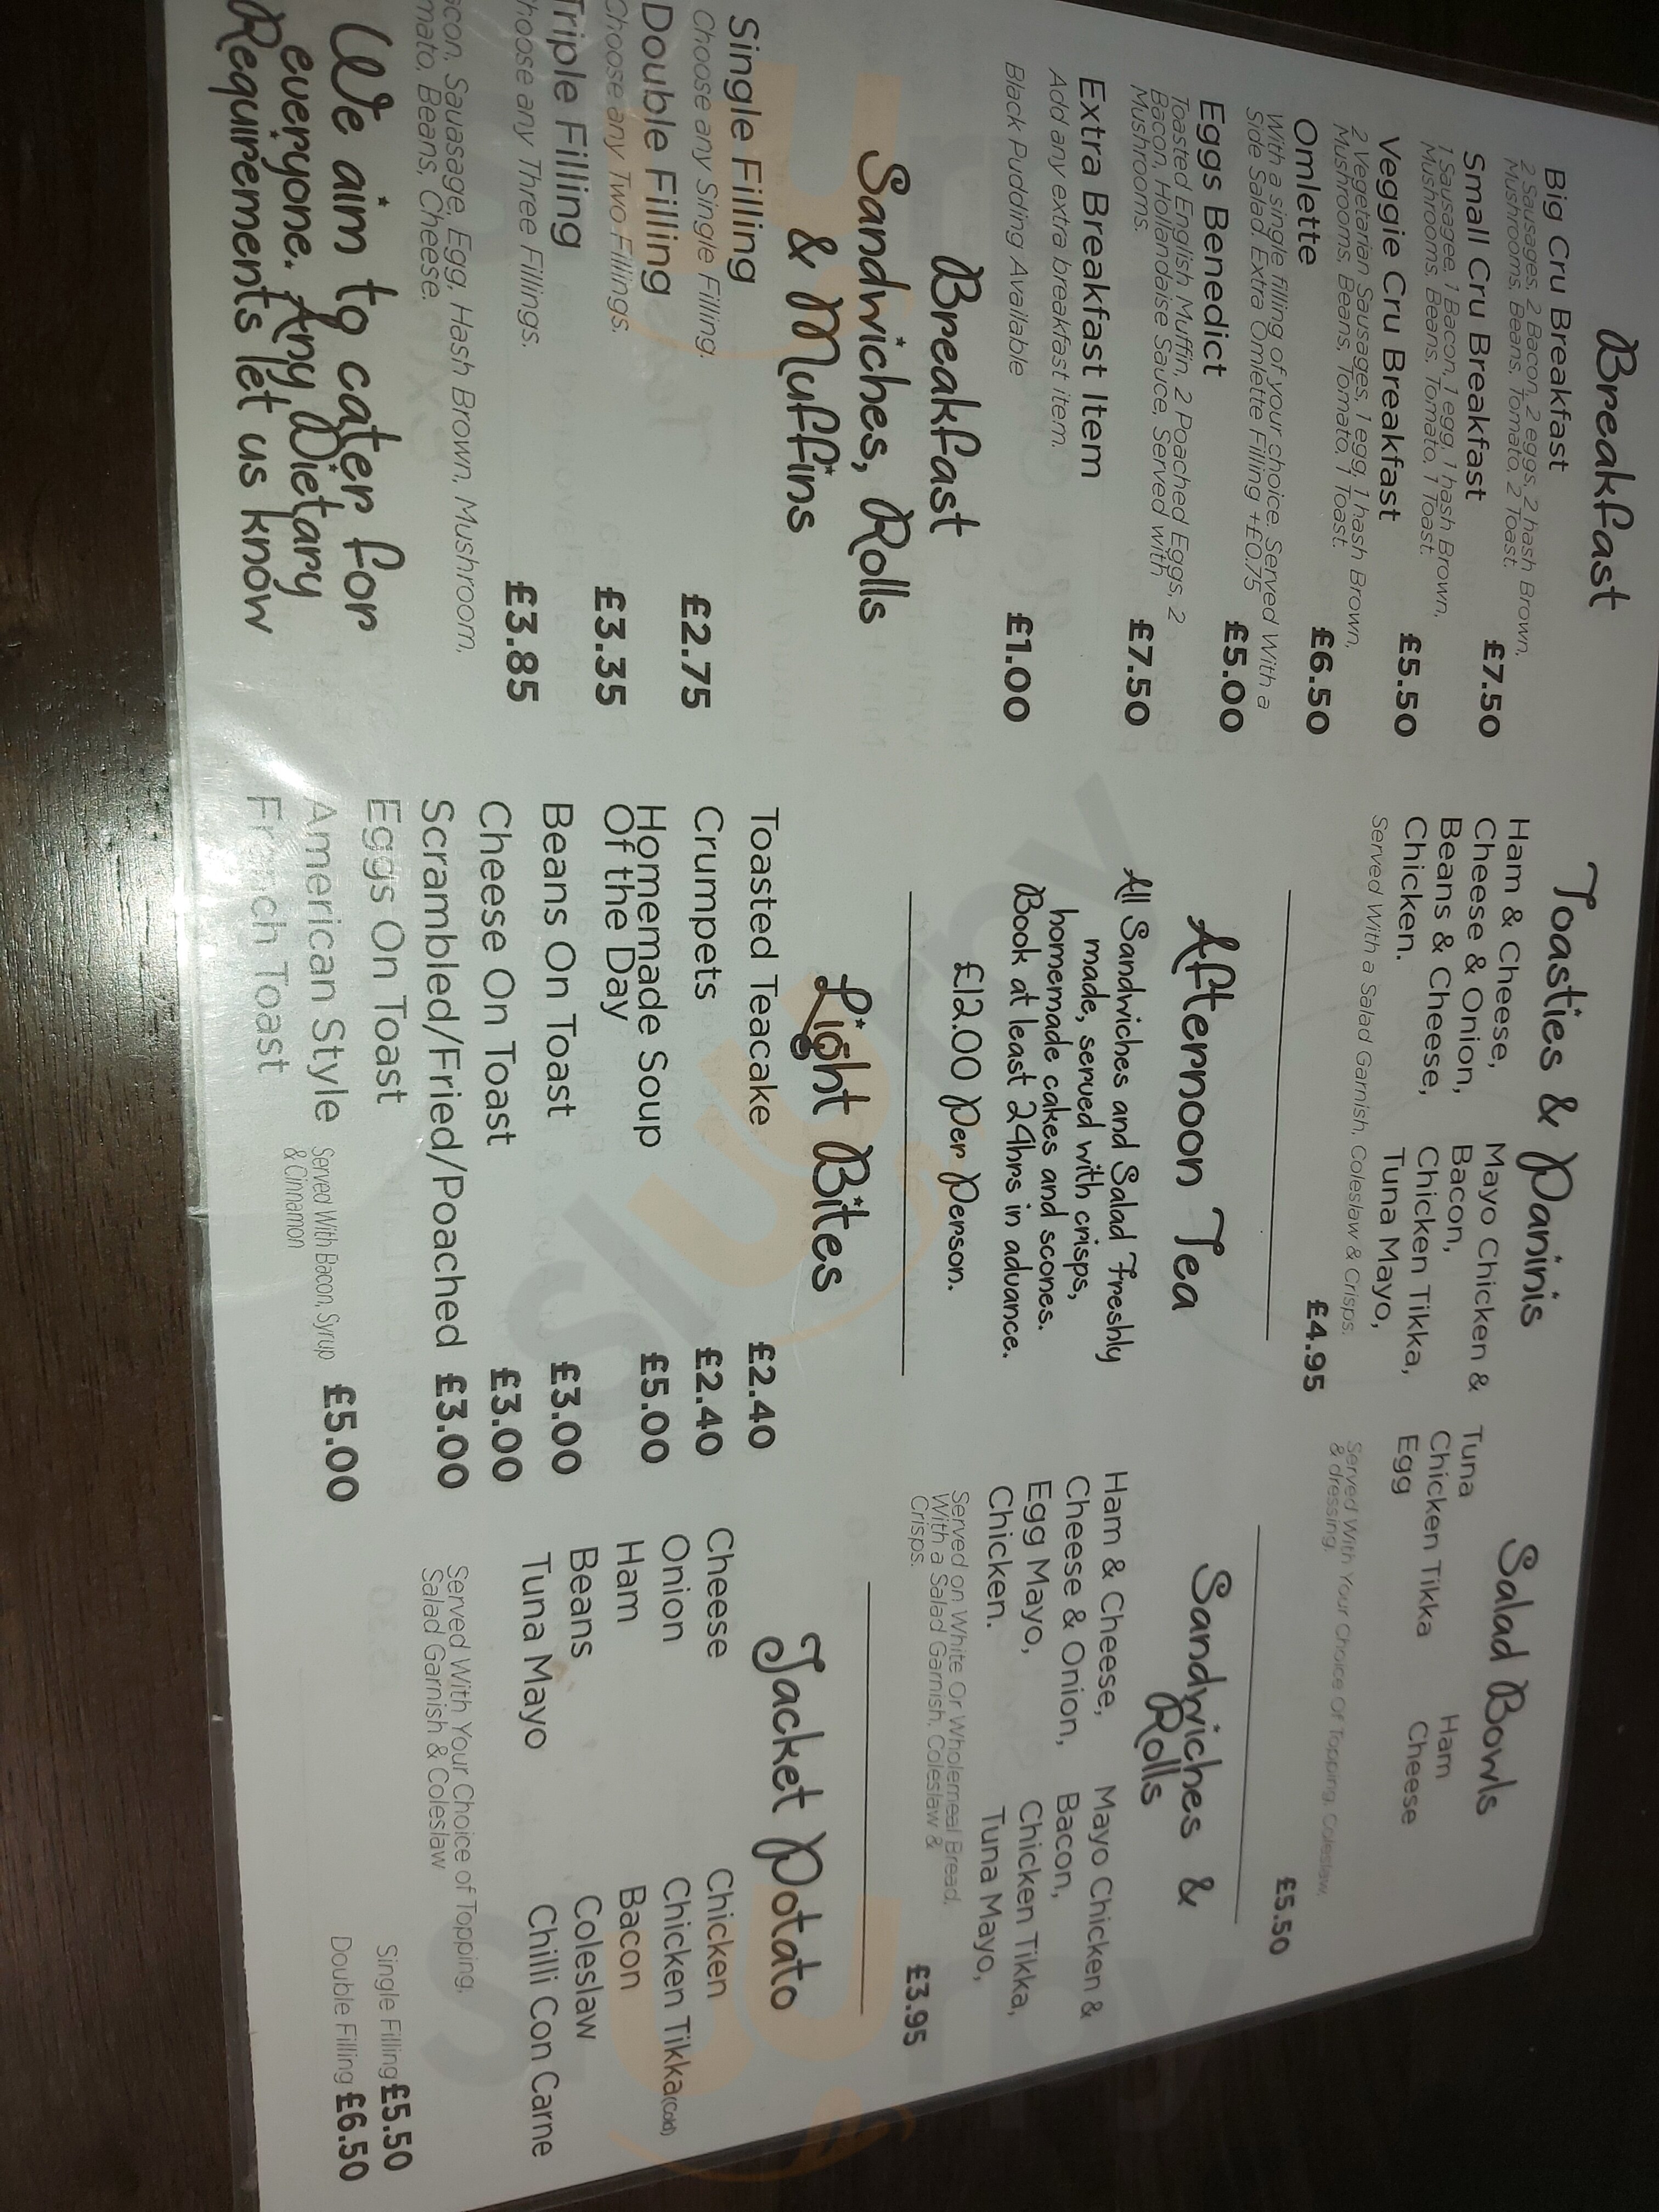 Breakfast
Big Cru Breakfast
2 Sausages, 2 Bacon, 2 eggs, 2 hash Brown,
Mushrooms, Beans, Tomato, 2 Toast.
£7.50
Small Cru Breakfast
1 Sausagee, 1 Bacon, 1 egg, 1 hash Brown,
Mushrooms, Beans, Tomato, 1 Toast.
£5.50
Veggie Cru Breakfast
2 Vegetarian Sausages, 1 egg, 1 hash Brown,
Mushrooms, Beans, Tomato, 1 Toast.
£6.50
Omlette
With a single filling of your choice. Served With a
Side Salad Extra Omlette Filling +£0.75
£5.00
Eggs Benedict
Toasted English Muffin, 2 Poached Eggs, 2
Bacon, Hollandaise Sauce, Served with
Mushrooms.
£7.50
Extra Breakfast Item
Add any extra breakfast item.
Black Pudding Available
£1.00
Breakfast
Sandwiches, Rolls
& Muffins
Single Filling
Choose any Single Filling.
£2.75
Double Filling
Choose any Two Fillings.
£3.35
Triple Filling
hoose any Three Fillings.
£3.85
con, Sauasage, Egg, Hash Brown, Mushroom,
mato, Beans, Cheese.
We aim to cater for
everyone. Any Dietary
Requirements let us know
Toasties & Paninis
Ham & Cheese,
Cheese & Onion,
Beans & Cheese,
Chicken.
Mayo Chicken &
Bacon,
Chicken Tikka,
Tuna Mayo,
Served With a Salad Garnish, Coleslaw & Crisps.
£4.95
Afternoon Tea
All Sandwiches and Salad Freshly
made, served with crisps,
homemade cakes and scones.
Book at least 24hrs in advance.
£12.00 Per Person.
Light Bites
Toasted Teacake £2.40
Crumpets £2.40
Homemade Soup
Of the Day £5.00
Beans On Toast £3.00
Cheese On Toast £3.00
Scrambled/Fried/Poached £3.00
Eggs On Toast
American Style
French Toast
Served With Bacon, Syrup
& Cinnamon
£5.00
Salad Bowls
Tuna
Chicken Tikka
Egg
Ham
Cheese
Served With Your Choice Of Topping, Coleslaw,
& dressing.
£5.50
Sandwiches &
Rolls
Ham & Cheese,
Cheese & Onion,
Egg Mayo,
Chicken.
Mayo Chicken &
Bacon,
Chicken Tikka,
Tuna Mayo,
Served on White Or Wholemeal Bread,
With a Salad Garnish, Coleslaw &
Crisps.
£3.95
Jacket Potato
Cheese
Onion
Ham
Beans
Tuna Mayo
Chicken
Chicken Tikka(Cold)
Bacon
Coleslaw
Chilli Con Carne
Served With Your Choice of Topping,
Salad Garnish & Coleslaw
Single Filling £5.50
Double Filling £6.50